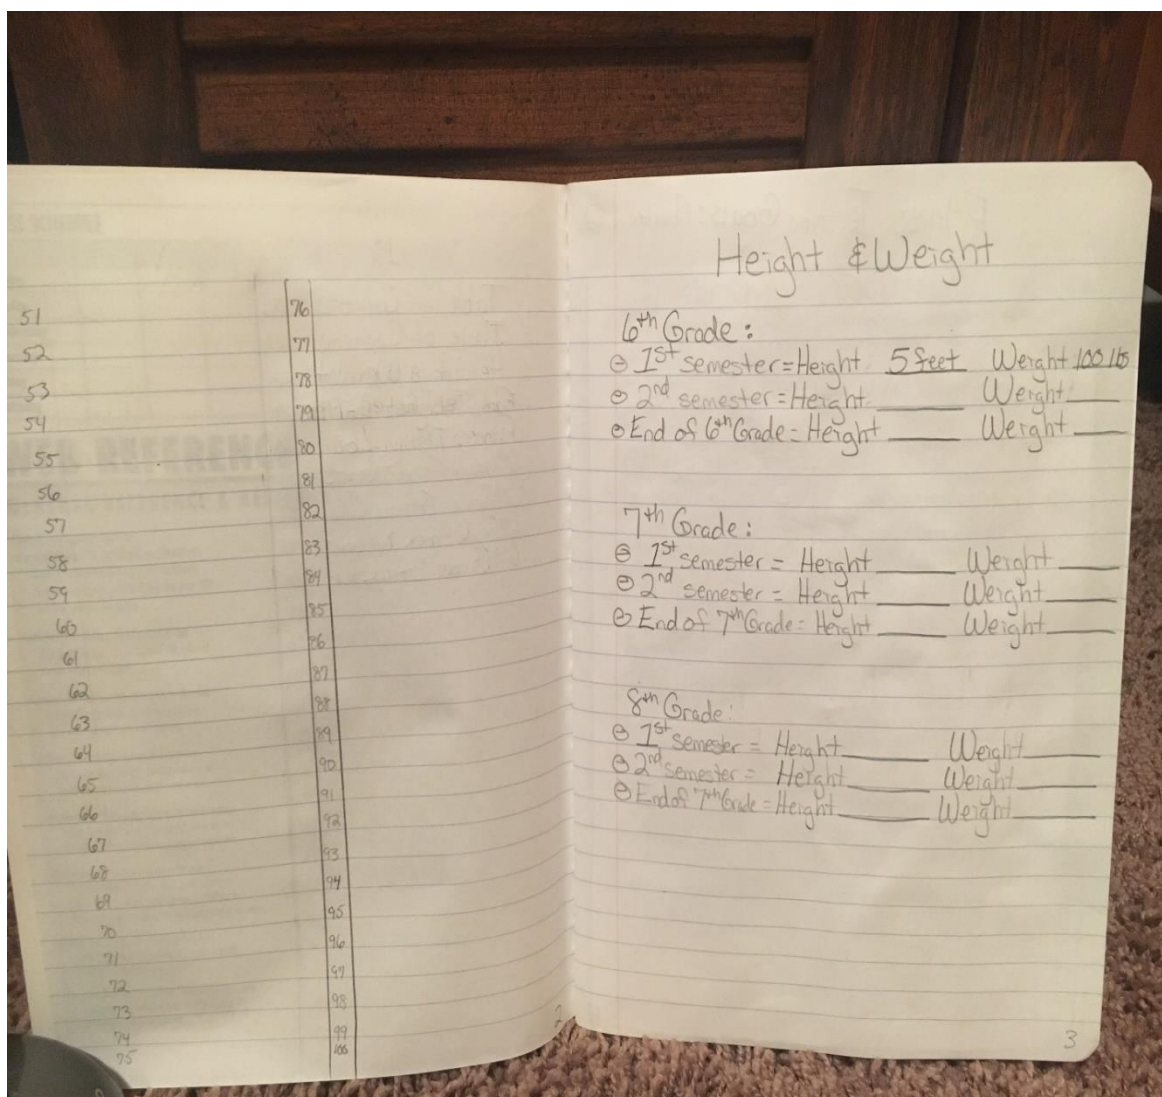 51
52
53
54
55
56
57
58
59
60
61
62
63
64
65
66
67
68
69
70
71
72
73
74
75
76
77
78
79
80
81
82
83
84
85
86
87
88
89
90
91
92
93
94
95
96
97
98
99
100
2
Height & Weight
6th Grade:
1st semester = Height 5 feet Weight 100 lbs
2nd semester = Height ____ Weight ____
End of 6th Grade = Height ____ Weight ____
7th Grade:
1st semester = Height ____ Weight ____
2nd semester = Height ____ Weight ____
End of 7th Grade = Height ____ Weight ____
8th Grade:
1st semester = Height ____ Weight ____
2nd semester = Height ____ Weight ____
End of 7th Grade = Height ____ Weight ____
3